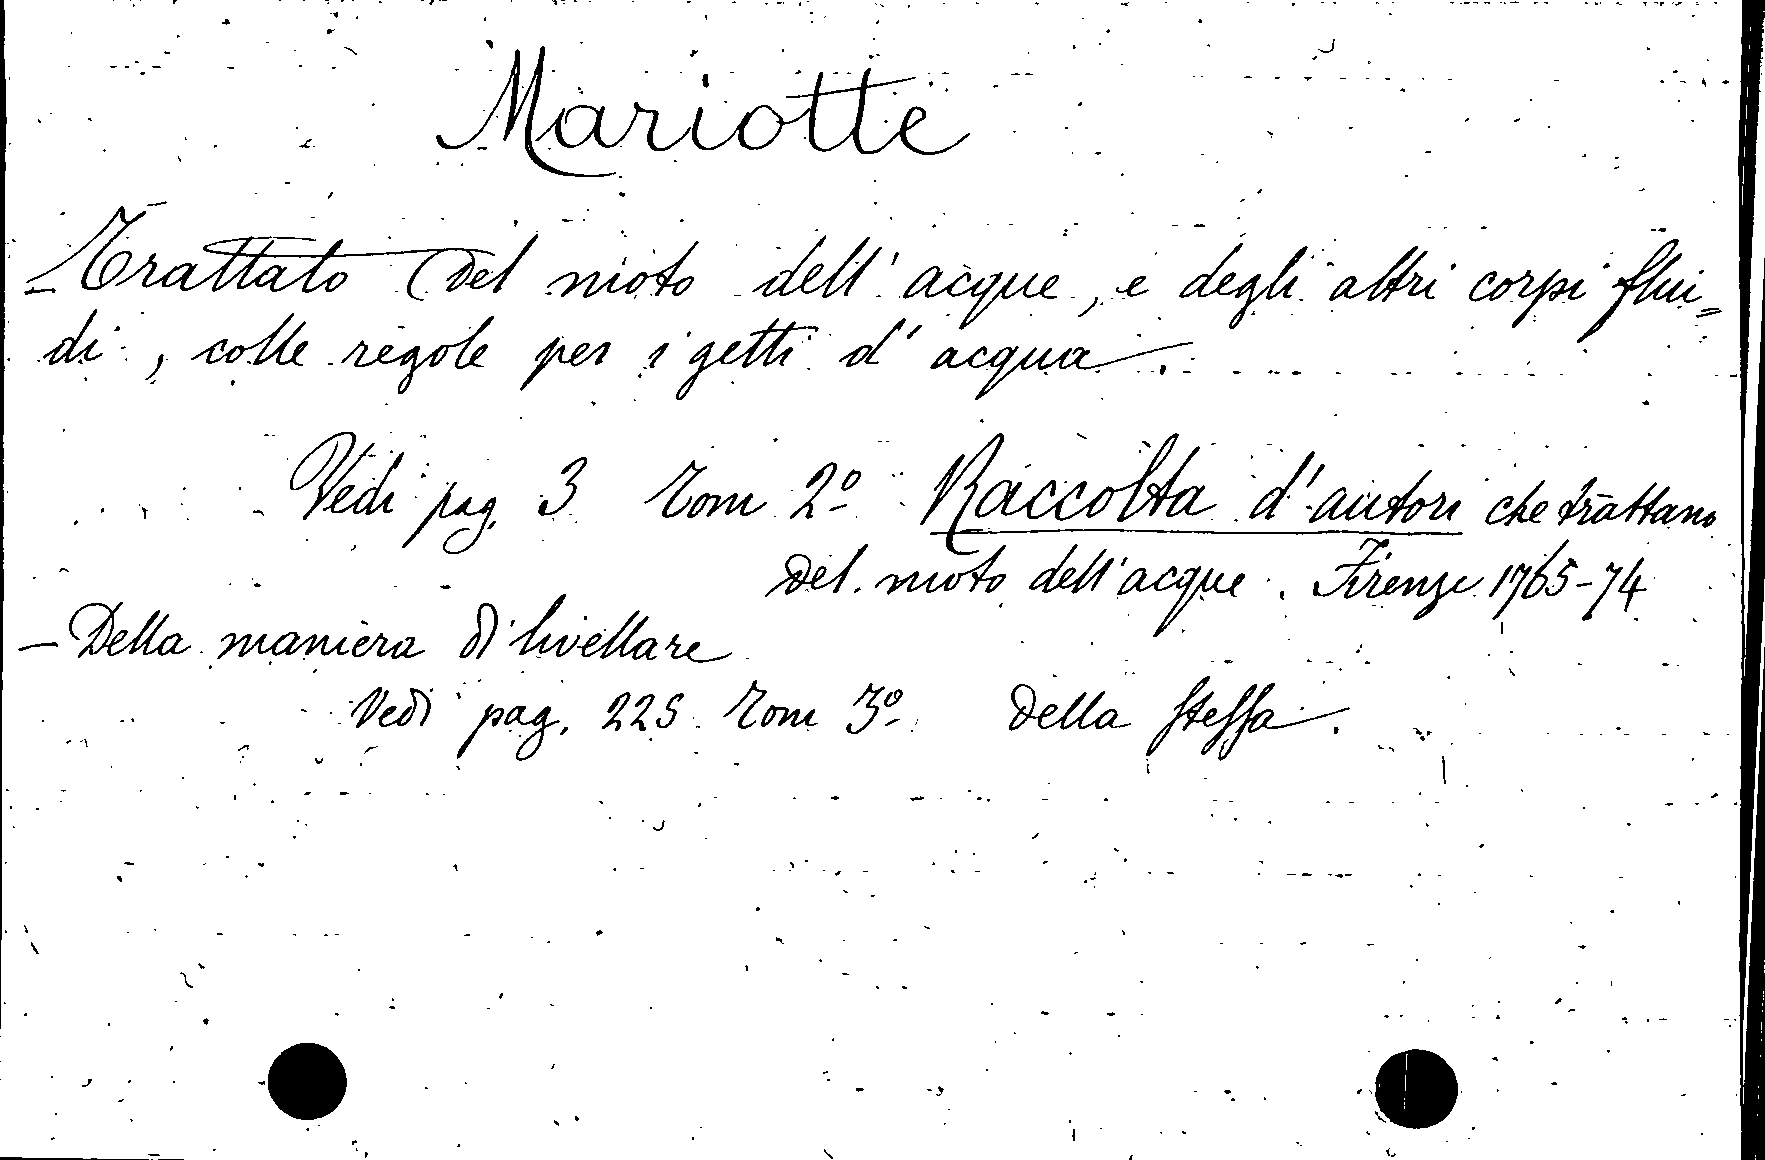 Mariotte
- Trattato del moto dell' acque, e degli altri corpi flui=
di, colle regole per i getti d' acqua.
Vedi pag. 3 Tom 2º Raccolta d'autori che trattano
del moto dell'acque. Firenze 1765-74
- Della maniera di livellare
Vedi pag. 225 Tom 3º della stessa.